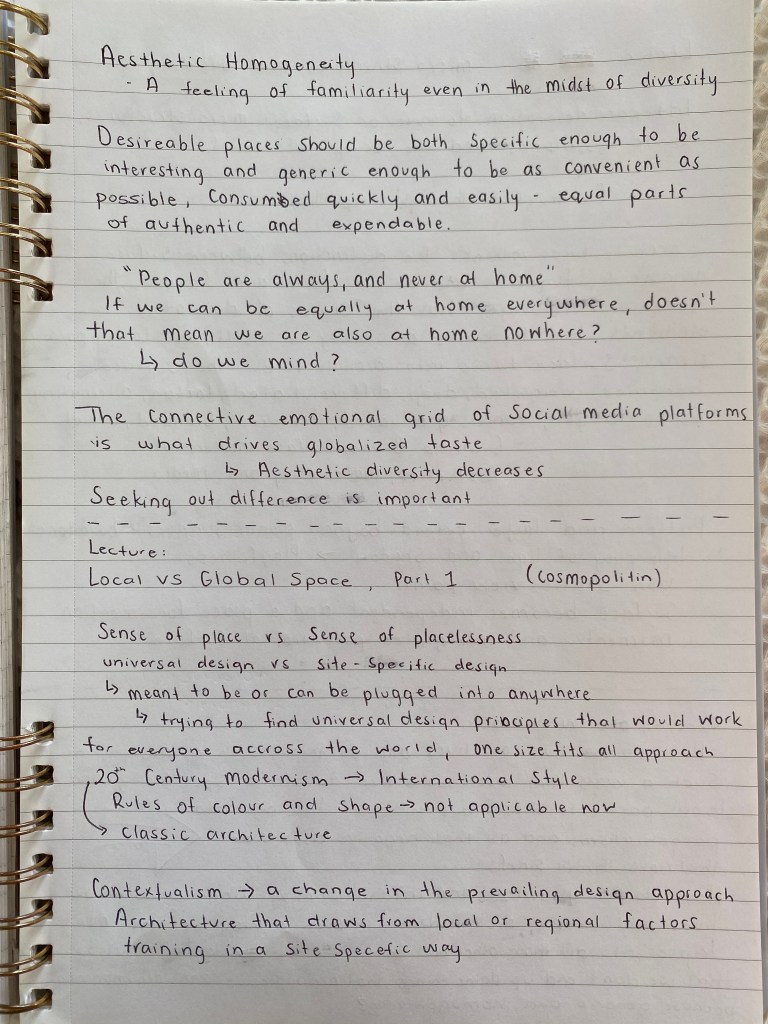 Aesthetic Homogeneity
- A feeling of familiarity even in the midst of diversity
Desireable places should be both specific enough to be
interesting and generic enough to be as convenient as
possible, consumed quickly and easily - equal parts
of authentic and expendable.
"People are always, and never at home"
If we can be equally at home everywhere, doesn't
that mean we are also at home nowhere?
↳ do we mind?
The connective emotional grid of social media platforms
is what drives globalized taste
↳ Aesthetic diversity decreases
Seeking out difference is important
Lecture:
Local vs Global Space, Part 1 (cosmopolitin)
Sense of place vs Sense of placelessness
universal design vs site-specific design
↳ meant to be or can be plugged into anywhere
↳ trying to find universal design principles that would work
for everyone accross the world, one size fits all approach
20th Century modernism → International Style
Rules of colour and shape → not applicable now
→ classic architecture
Contextualism → a change in the prevailing design approach
Architecture that draws from local or regional factors
training in a site specefic way